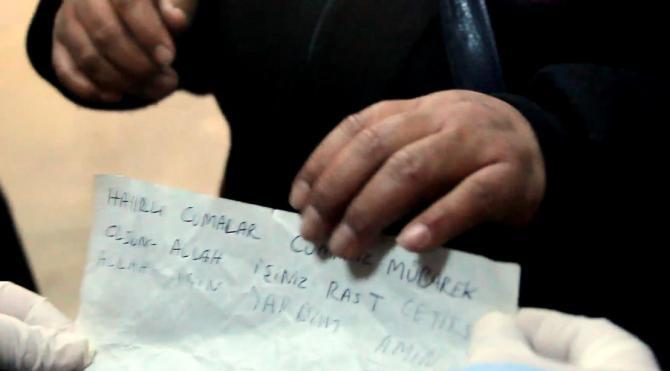 HAYIRLI CUMALAR MÜBAREK
OLSUN. ALLAH İŞİNİZ RAST GETİRSİ
ALLAH İÇİN YARDIM AMİN